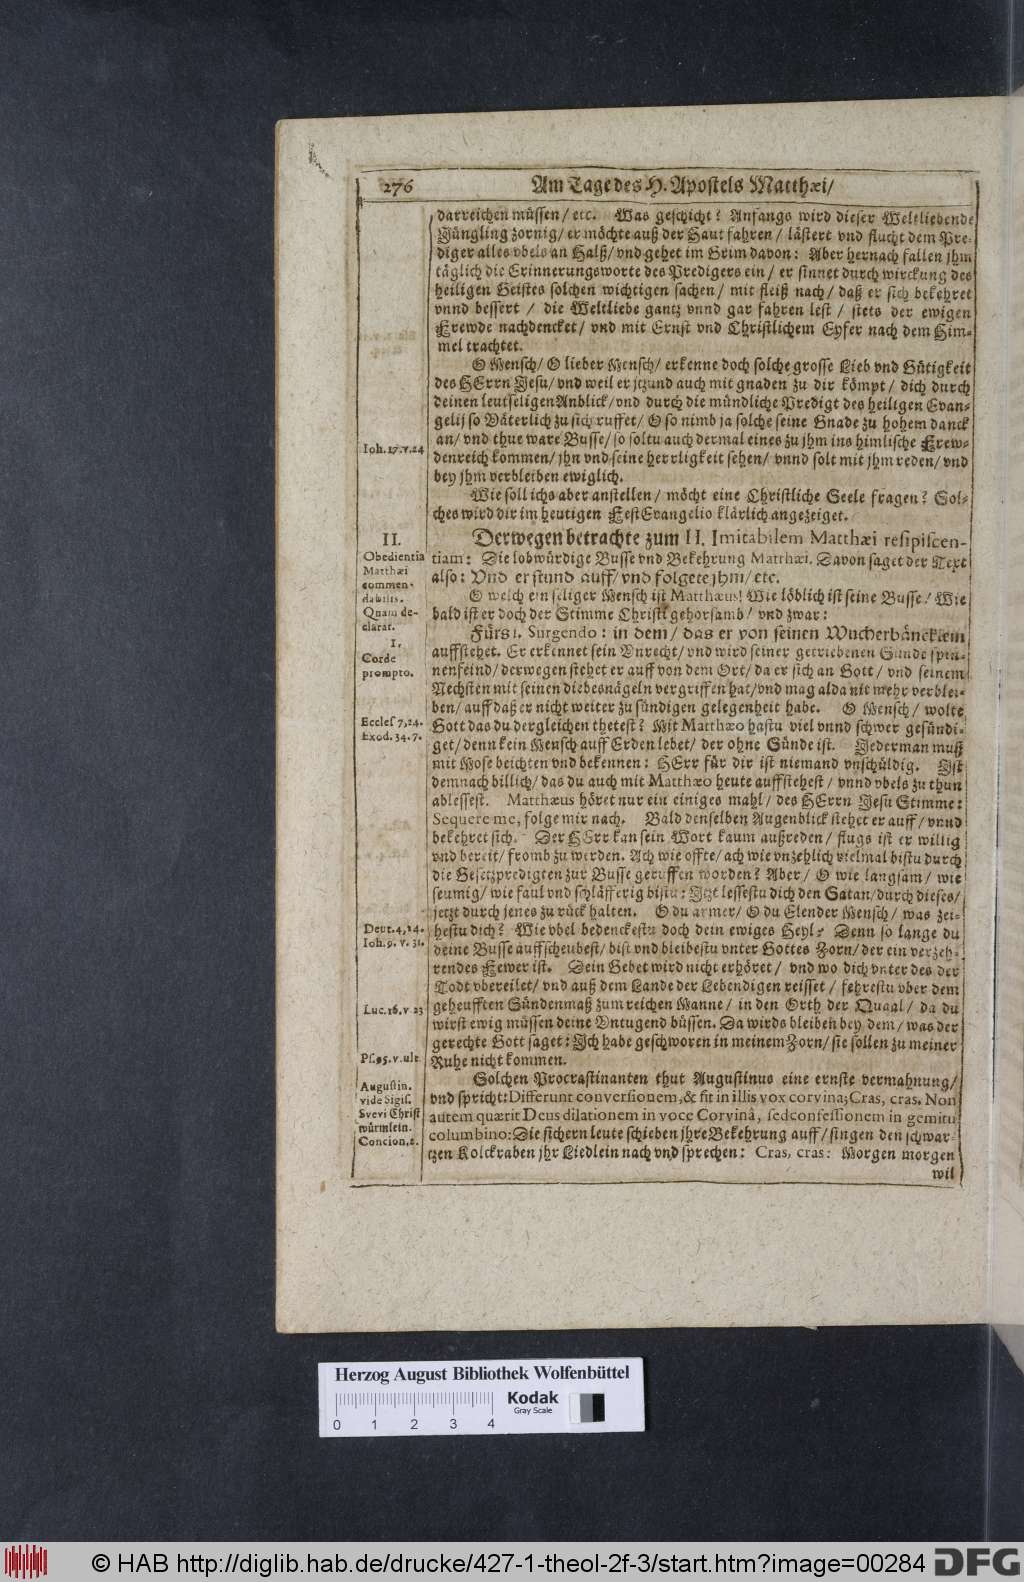 276 Am Tage des H. Apostels Matthæi/
darreichen müssen/ etc. Was geschicht? Anfangs wird dieser Weltliebende
Jüngling zornig/ er möchte auß der Haut fahren/ lästert vnd flucht dem Pre-
diger alles vbels an Halß/ vnd gehet im Grim davon: Aber hernach fallen jhm
täglich die Erinnerungsworte des Predigers ein/ er sinnet durch wirckung des
heiligen Geistes solchen wichtigen sachen/ mit fleiß nach/ daß er sich bekehret
vnnd bessert/ die Weltliebe gantz vnnd gar fahren lest/ stets der ewigen
Frewde nachdencket/ vnd mit Ernst vnd Christlichem Eyfer nach dem Him-
mel trachtet.
O Mensch/ O lieber Mensch/ erkenne doch solche grosse Lieb vnd Gütigkeit
des HErrn Jesu/ vnd weil er jtzund auch mit gnaden zu dir kömpt/ dich durch
deinen leutseligen Anblick/ vnd durch die mündliche Predigt des heiligen Evan-
gelij so Väterlich zu sich ruffet/ O so nimb ja solche seine Gnade zu hohem danck
an/ vnd thue ware Busse/ so soltu auch dermal eines zu jhm ins himlische Frew-
Ioh. 17. v. 24
denreich kommen/ jhn vnd seine herrligkeit sehen/ vnnd solt mit jhm reden/ vnd
bey jhm verbleiben ewiglich.
Wie soll ichs aber anstellen/ möcht eine Christliche Seele fragen? Sol-
ches wird dir im heutigen Fest Evangelio klärlich angezeiget.
II.
Obedientia
Matthæi
commen-
dabilis.
Quam de-
clarat.
Derwegen betrachte zum II. Imitabilem Matthæi resipiscen-
tiam: Die lobwürdige Busse vnd Bekehrung Matthæi. Davon saget der Text
also: Vnd er stund auff/ vnd folgete jhm/ etc.
O welch ein seliger Mensch ist Matthæus! Wie löblich ist seine Busse/ Wie
bald ist er doch der Stimme Christi gehorsamb/ vnd zwar:
1.
Corde
prompto.
Fürs 1. Surgendo: in dem/ das er von seinen Wucherbäncklein
auffstehet. Er erkennet sein Vnrecht/ vnd wird seiner getriebenen Sünde spin-
nenfeind/ derwegen stehet er auff von dem Ort/ da er sich an Gott/ vnd seinem
Nechsten mit seinen diebesnägeln vergriffen hat/ vnd mag alda nit mehr verblei-
ben/ auff daß er nicht weiter zu sündigen gelegenheit habe. O Mensch/ wolte
Eccles 7, 24.
Exod. 34. 7.
Gott das du dergleichen thetest? Mit Matthæo hastu viel vnnd schwer gesündi-
get/ denn kein Mensch auff Erden lebet/ der ohne Sünde ist. Jederman muß
mit Mose beichten vnd bekennen: HErr für dir ist niemand vnschüldig. Ist
demnach billich/ das du auch mit Matthæo heute auffstehest/ vnnd vbels zu thun
ablessest. Matthæus höret nur ein einiges mahl/ des HErrn Jesu Stimme:
Sequere me, folge mir nach. Bald denselben Augenblick stehet er auff/ vnnd
bekehret sich. Der HErr kan sein Wort kaum außreden/ flugs ist er willig
vnd bereit/ fromb zu werden. Ach wie offte/ ach wie vnzehlich vielmal bistu durch
die Gesetzpredigten zur Busse geruffen worden? Aber/ O wie langsam/ wie
seumig/ wie faul vnd schläfferig bistu: Jtzt lessestu dich den Satan/ durch dieses/
jetzt durch jenes zu rück halten. O du armer/ O du Elender Mensch/ was zei-
Deut. 4, 24.
Ioh. 9. v. 31.
hestu dich? Wie vbel bedenckestu doch dein ewiges Heyl? Denn so lange du
deine Busse auffscheubest/ bist vnd bleibestu vnter Gottes Zorn/ der ein verzeh-
rendes Fewer ist. Dein Gebet wird nicht erhöret/ vnd wo dich vnter des der
Todt vbereilet/ vnd auß dem Lande der Lebendigen reisset/ fehrestu vber dem
Luc. 16. v 23
geheufften Sündenmaß zum reichen Manne/ in den Orth der Quaal/ da du
wirst ewig müssen deine Vntugend büssen. Da wirds bleiben bey dem/ was der
gerechte Gott saget: Ich habe geschworen in meinem Zorn/ sie sollen zu meiner
Ps. 95. v. ult.
Ruhe nicht kommen.
Augustin.
vide Sigis.
Svevi Christ
würmlein.
Concion. 2.
Solchen Procrastinanten thut Augustinus eine ernste vermahnung/
vnd spricht: Differunt conversionem, & fit in illis vox corvina; Cras, cras. Non
autem quærit Deus dilationem in voce Corvinâ, sed confessionem in gemitu
columbino: Die sichern leute schieben jhre Bekehrung auff/ singen den schwar-
tzen Kolckraben jhr Liedlein nach vnd sprechen: Cras, cras: Morgen morgen
wil
Herzog August Bibliothek Wolfenbüttel
0 1 2 3 4
Kodak
Gray Scale
© HAB http://diglib.hab.de/drucke/427-1-theol-2f-3/start.htm?image=00284
DFG